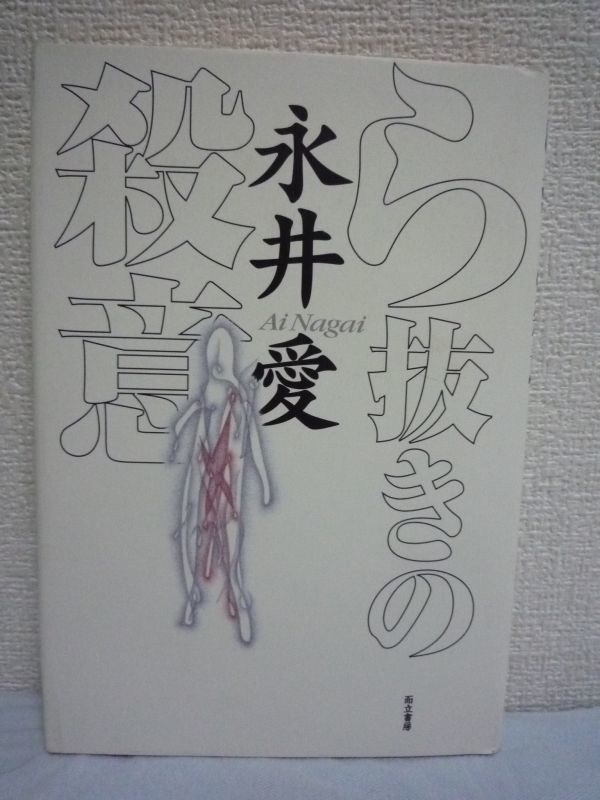 ら抜きの
殺意
永井愛
Ai Nagai
而立書房